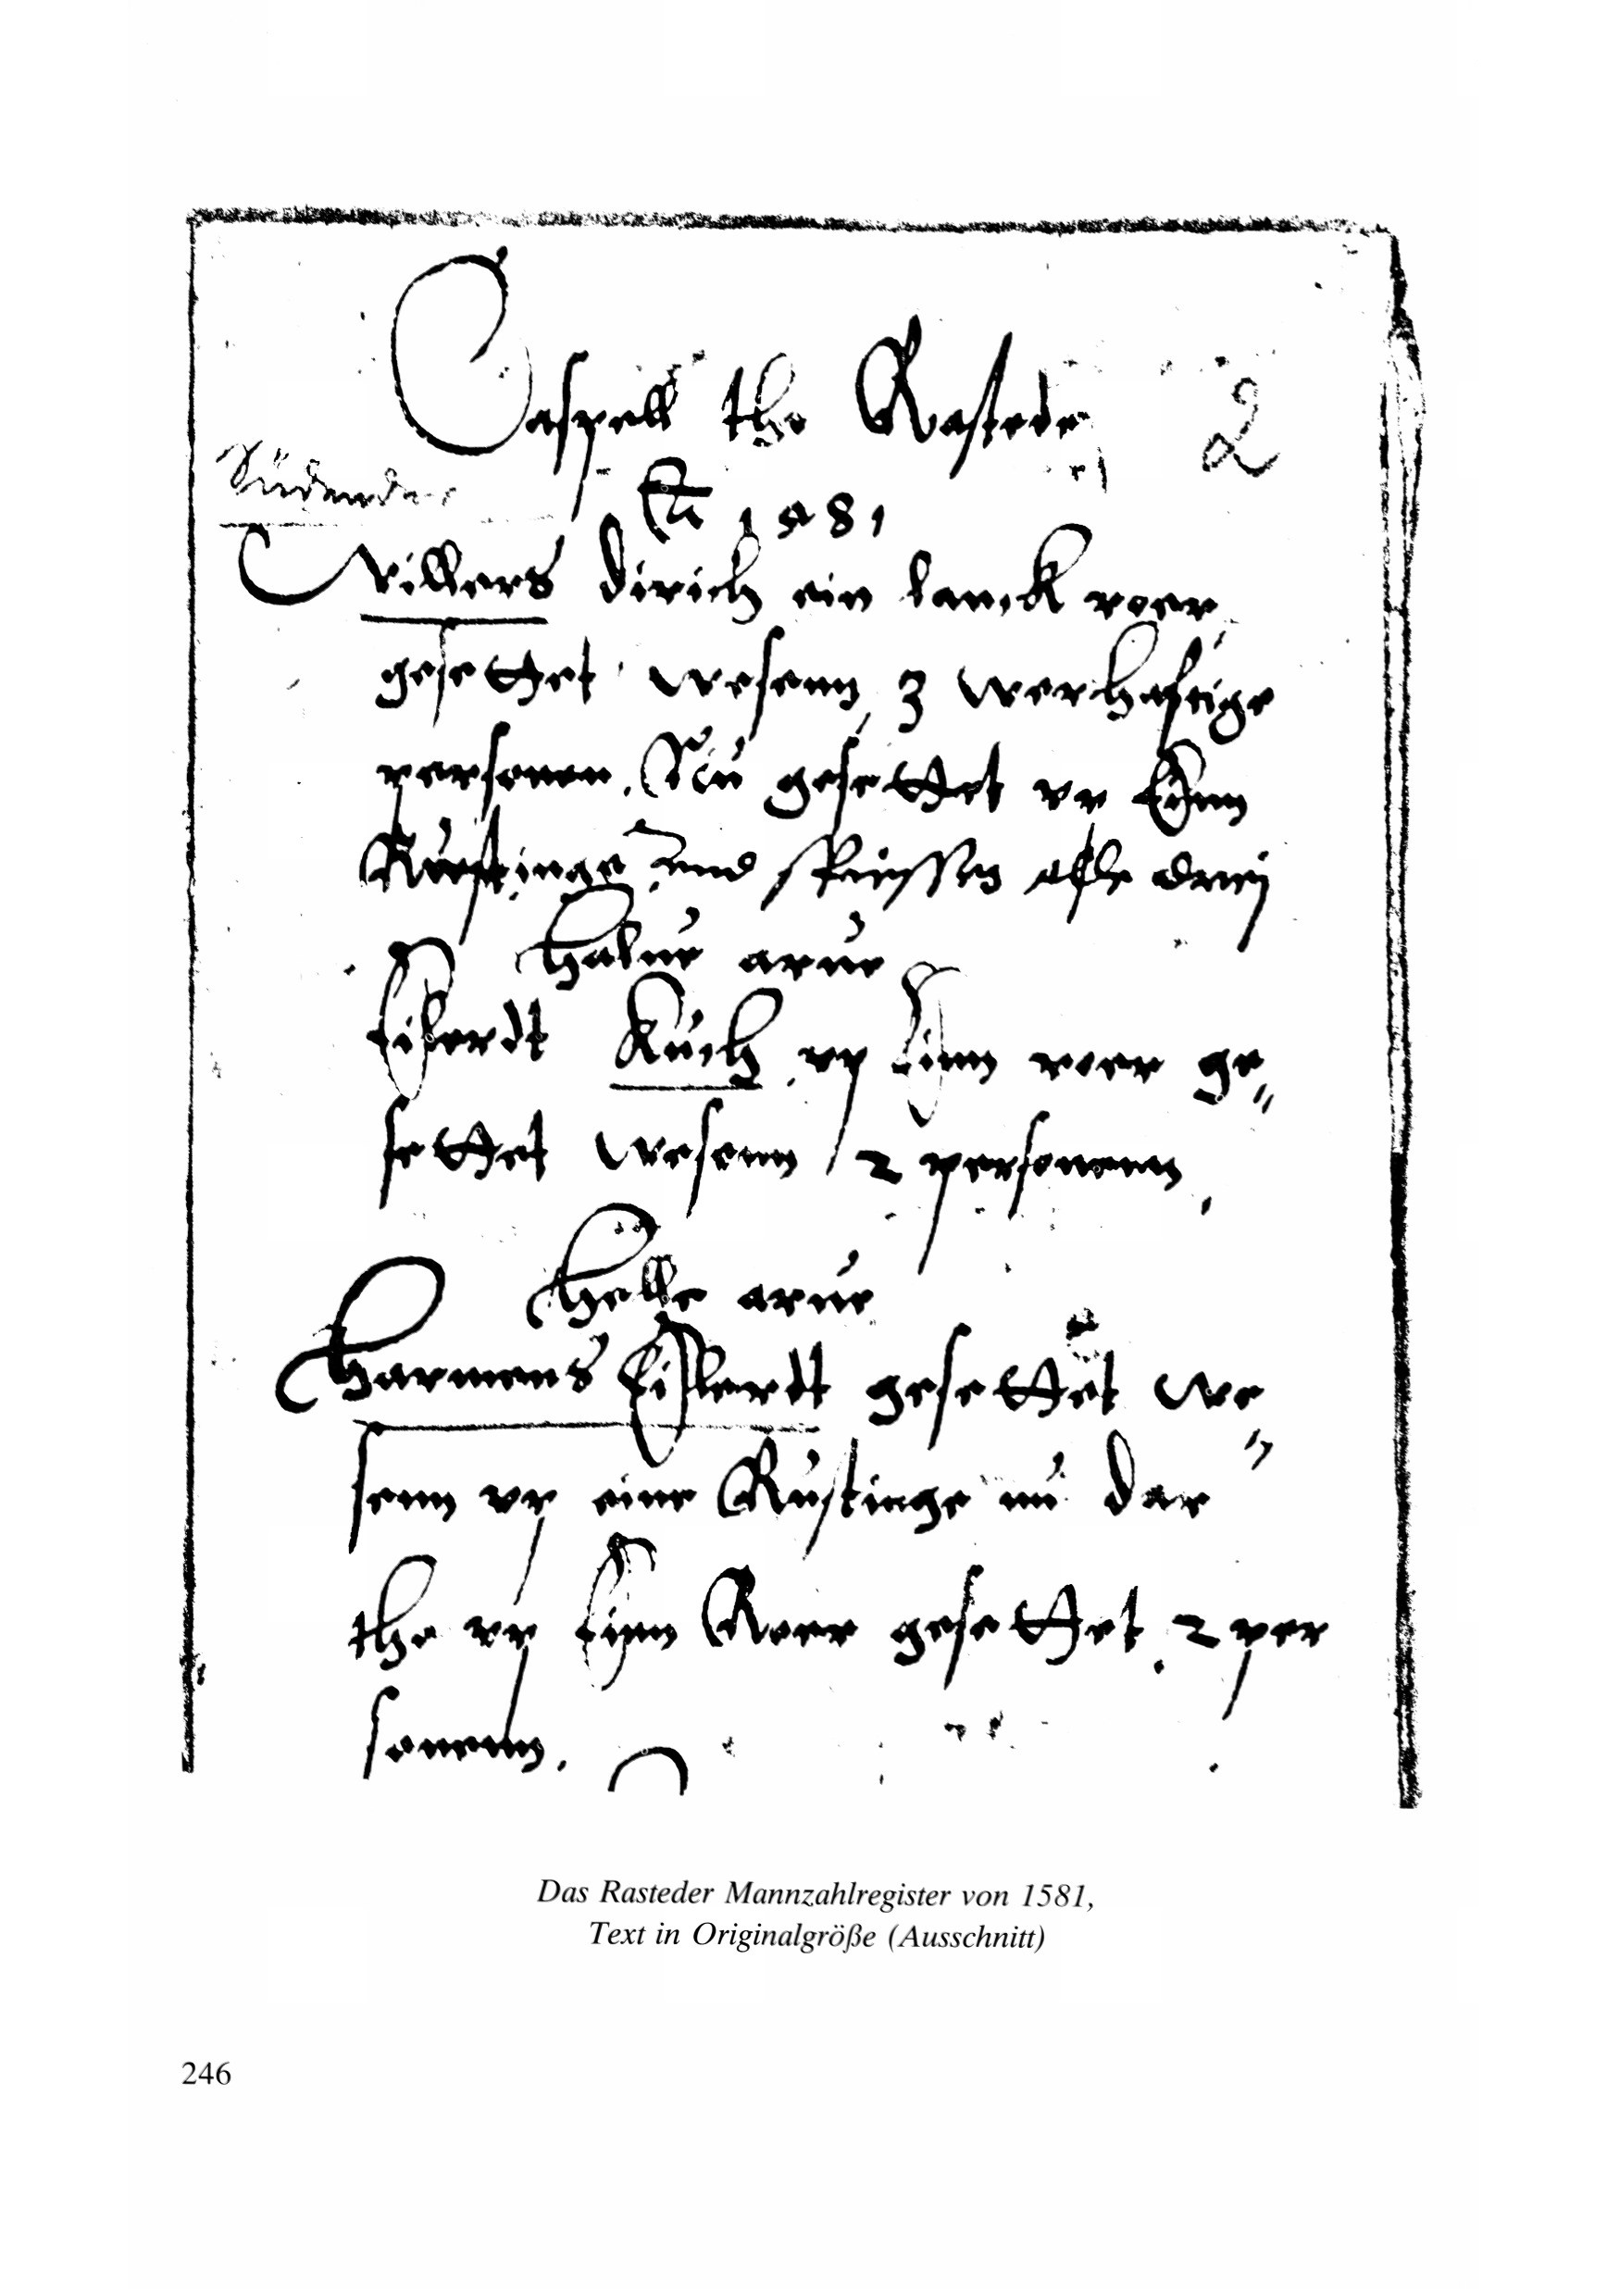 Caspell tho Rastede 2
Südende
A 1581
Willers dirich ein lanck roer
gesettet wesenn, 3 werhaftige
personen. Nu gesettet vp Ein
Rustinge vnd spiessen alle drey
halue arue
Eilerdt Kuch vp Einn roer ge„
settet wesenn 2 personenn,
helle arue
Harmens Eilerdt gesettet we„
senn vp eine Rustinge nu dar
tho vp Einn Roer gesettet. 2 per
sonenn.
Das Rasteder Mannzahlregister von 1581,
Text in Originalgröße (Ausschnitt)
246